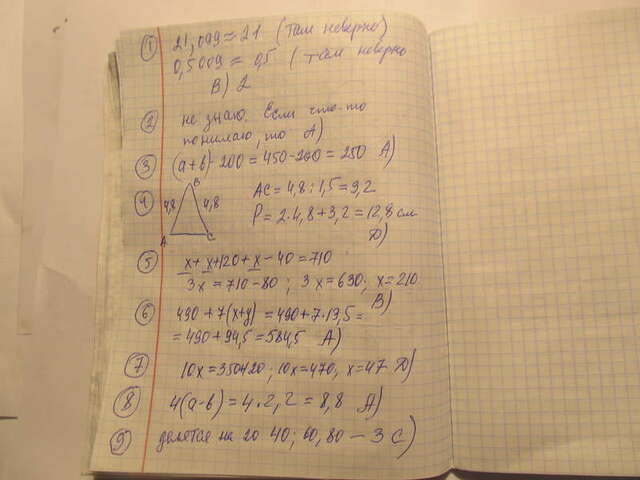 ① 21,099 ≈ 21 (там неверно)
0,5009 ≈ 0,5 (там неверно
В) 2
② не знаю. Если что-то
понимаю, то А)
③ (a+b)-200=450-200=250 А)
④ AC = 4,8 : 1,5 = 3,2
B
4,8 4,8
P = 2·4,8+3,2 = 12,8 см
A C
Д)
⑤ x + x+120+x - 40 = 710
3x = 710-80 ; 3x = 630; x=210
В)
⑥ 490 + 7(x+y) = 490+7·13,5 =
= 490 + 94,5 = 584,5 А)
⑦ 10x = 350+120 ; 10x = 470, x = 47 Д)
⑧ 4(a-b) = 4·2,2 = 8,8 А)
⑨ делятся на 20 40; 60, 80 — 3 С)